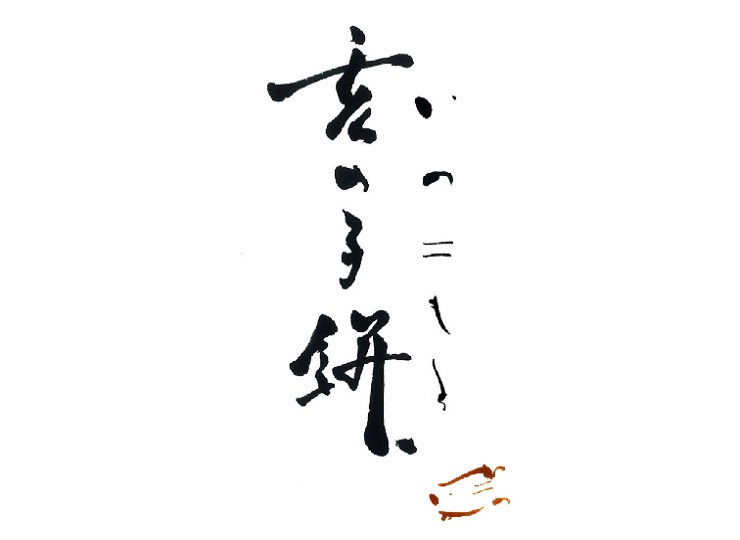 亥の子餅
いのこもち